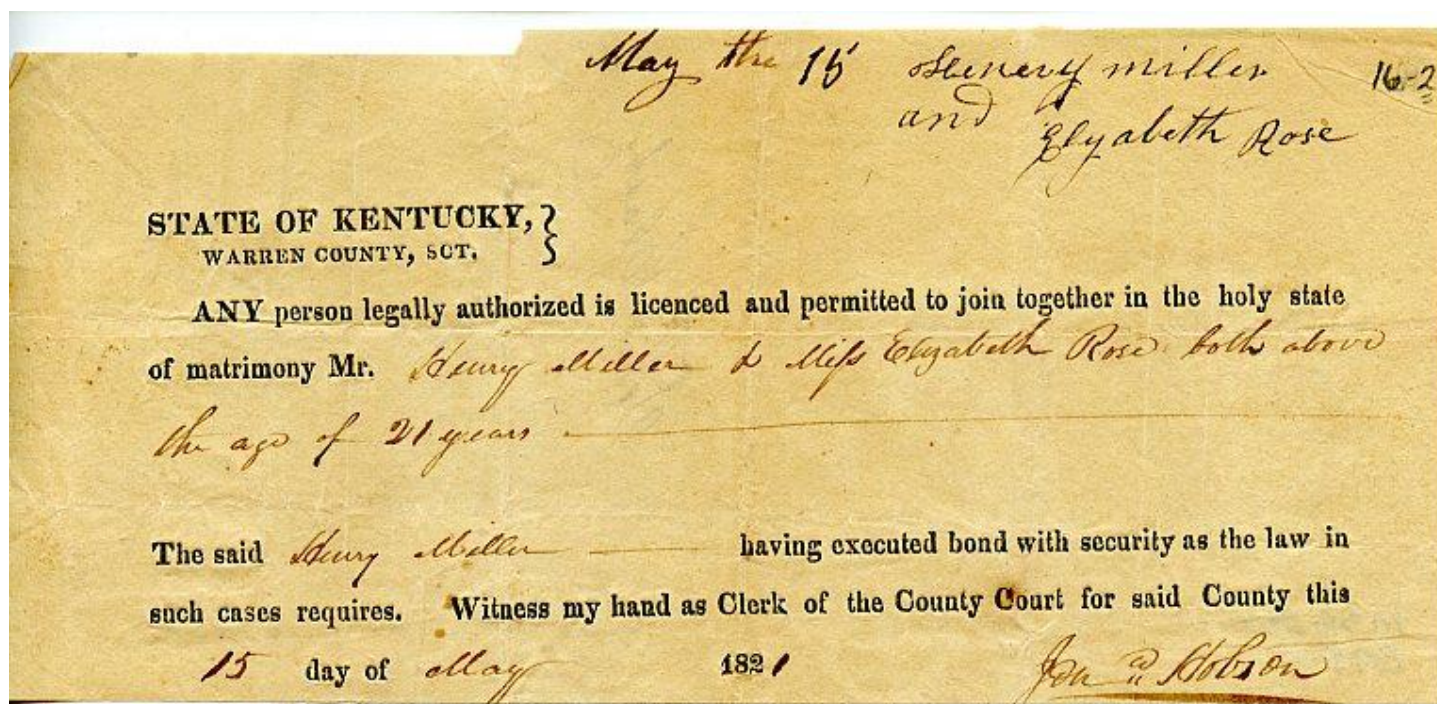 May the 15 Henery miller 16-2
and Elyabeth Rose
STATE OF KENTUCKY,
WARREN COUNTY, SCT.
ANY person legally authorized is licenced and permitted to join together in the holy state
of matrimony Mr. Henry Miller & Miſs Elizabeth Rose both above
the age of 21 years
The said Henry Miller having executed bond with security as the law in
such cases requires. Witness my hand as Clerk of the County Court for said County this
15 day of May 1821 Jon Hobson